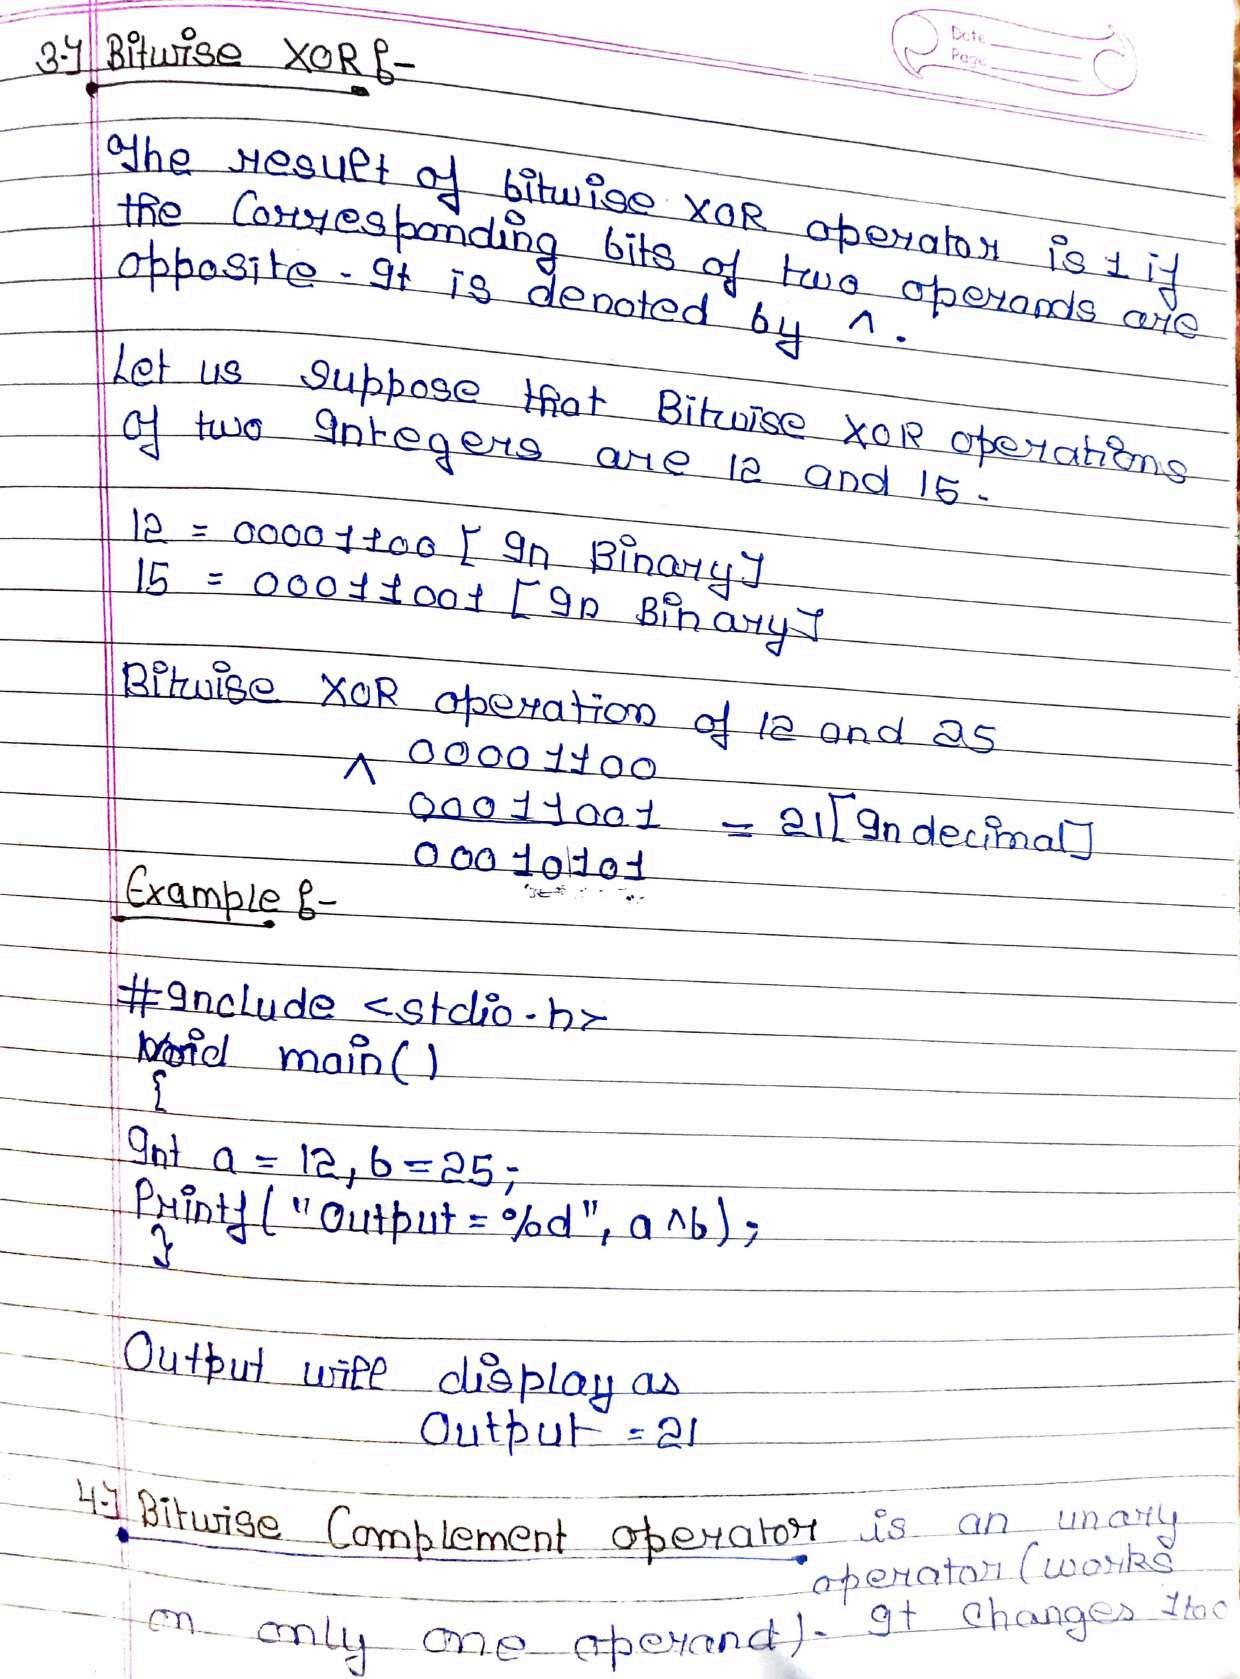 Date
Page
3.] Bitwise XOR :-
The result of bitwise XOR operator is 1 if
the Corresponding bits of two operands are
opposite. It is denoted by ^.
Let us suppose that Bitwise XOR operations
of two Integers are 12 and 15.
12 = 00001100 [In Binary]
15 = 00011001 [In Binary]
Bitwise XOR operation of 12 and 25
00001100
^
00011001 = 21 [In decimal]
00010101
Example :-
#Include <stdio.h>
Void main()
{
Int a = 12, b = 25;
Printf("Output = %d", a ^ b);
}
Output will display as
Output = 21
4.] Bitwise Complement operator is an unary
operator (works
on only one operand). It changes 1 to 0